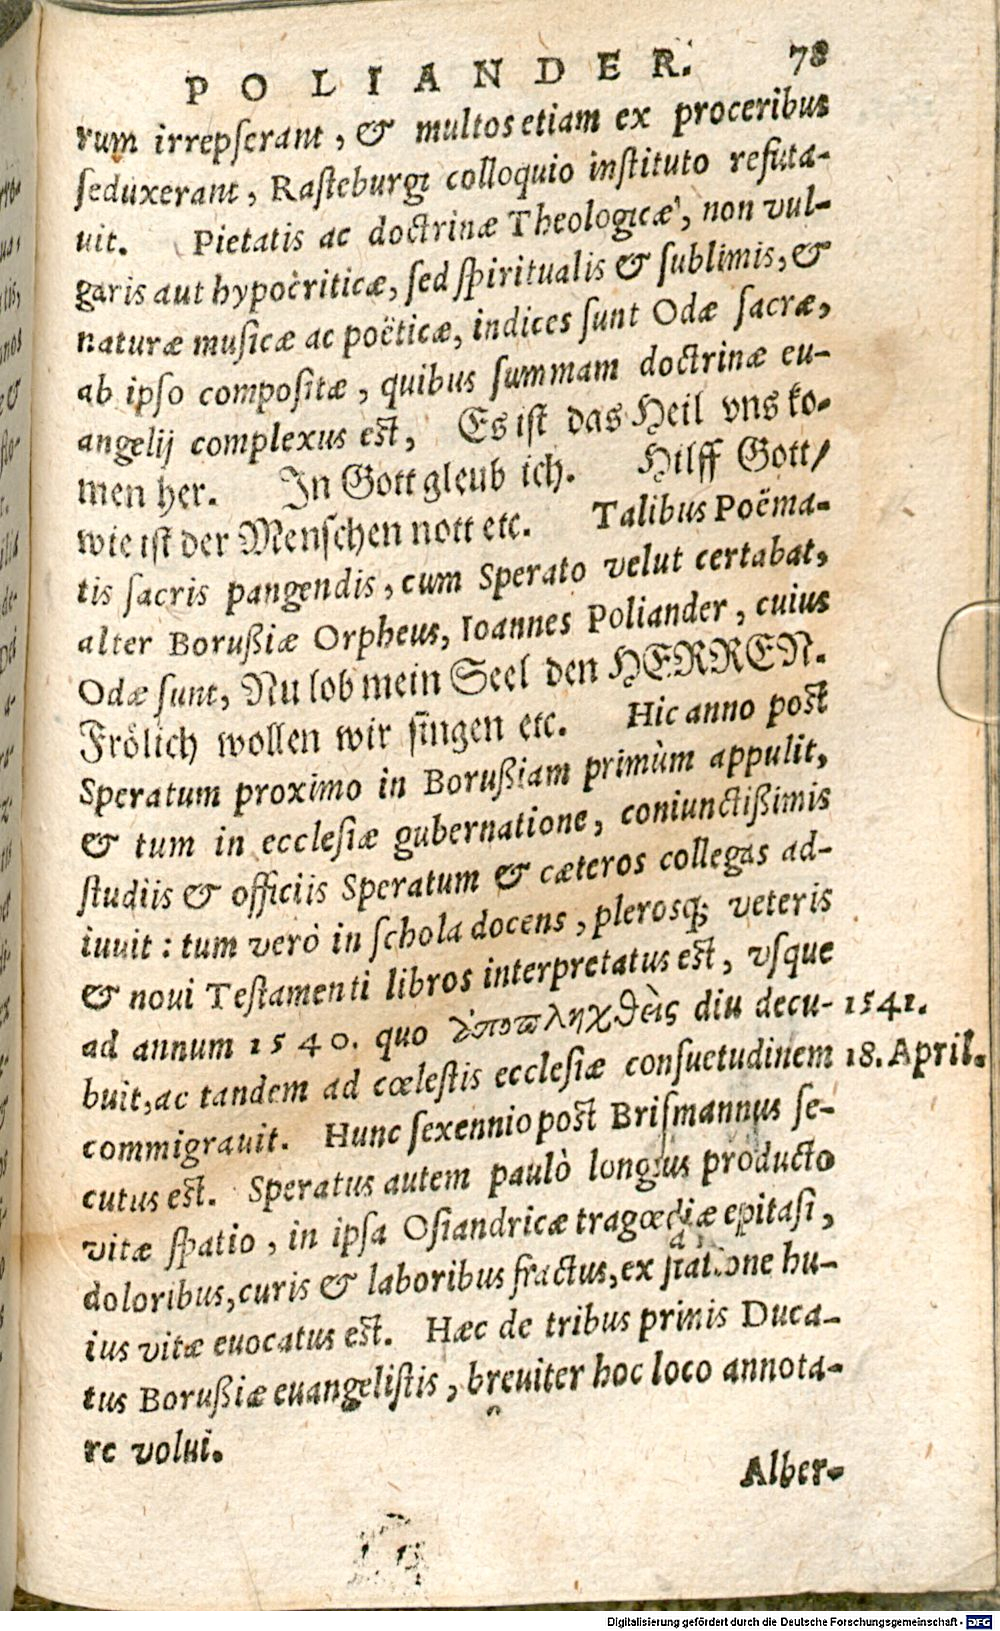 POLIANDER. 78
rum irrepſerant, & multos etiam ex proceribus
ſeduxerant, Raſteburgi colloquio inſtituto refuta-
uit. Pietatis ac doctrinæ Theologicæ, non vul-
garis aut hypocriticæ, ſed ſpiritualis & ſublimis, &
naturæ muſicæ ac poëticæ, indices ſunt Odæ ſacræ,
ab ipſo compoſitæ, quibus ſummam doctrinæ eu-
angelij complexus eſt, Es iſt das Heil vns ko-
men her. In Gott gleub ich. Hilff Gott/
wie iſt der Menſchen nott etc. Talibus Poëma-
tis ſacris pangendis, cum Sperato velut certabat,
alter Borußiæ Orpheus, Ioannes Poliander, cuius
Odæ ſunt, Nu lob mein Seel den HERREN.
Frölich wollen wir ſingen etc. Hic anno poſt
Speratum proximo in Borußiam primùm appulit,
& tum in eccleſiæ gubernatione, coniunctißimis
ſtudiis & officiis Speratum & cæteros collegas ad-
iuuit: tum verò in ſchola docens, plerosq; veteris
& noui Teſtamenti libros interpretatus eſt, vſque
ad annum 1540. quo ἀποπληχθεὶς diu decu- 1541.
buit, ac tandem ad cœleſtis eccleſiæ conſuetudinem 18. April.
commigrauit. Hunc ſexennio poſt Briſmannus ſe-
cutus eſt. Speratus autem paulò longius producto
vitæ ſpatio, in ipſa Oſiandricæ tragœdiæ epitaſi,
doloribus, curis & laboribus fractus, ex ſtatione hu-
ius vitæ euocatus eſt. Hæc de tribus primis Duca-
tus Borußiæ euangeliſtis, breuiter hoc loco annota-
re volui.
Alber-
Digitalisierung gefördert durch die Deutsche Forschungsgemeinschaft - DFG